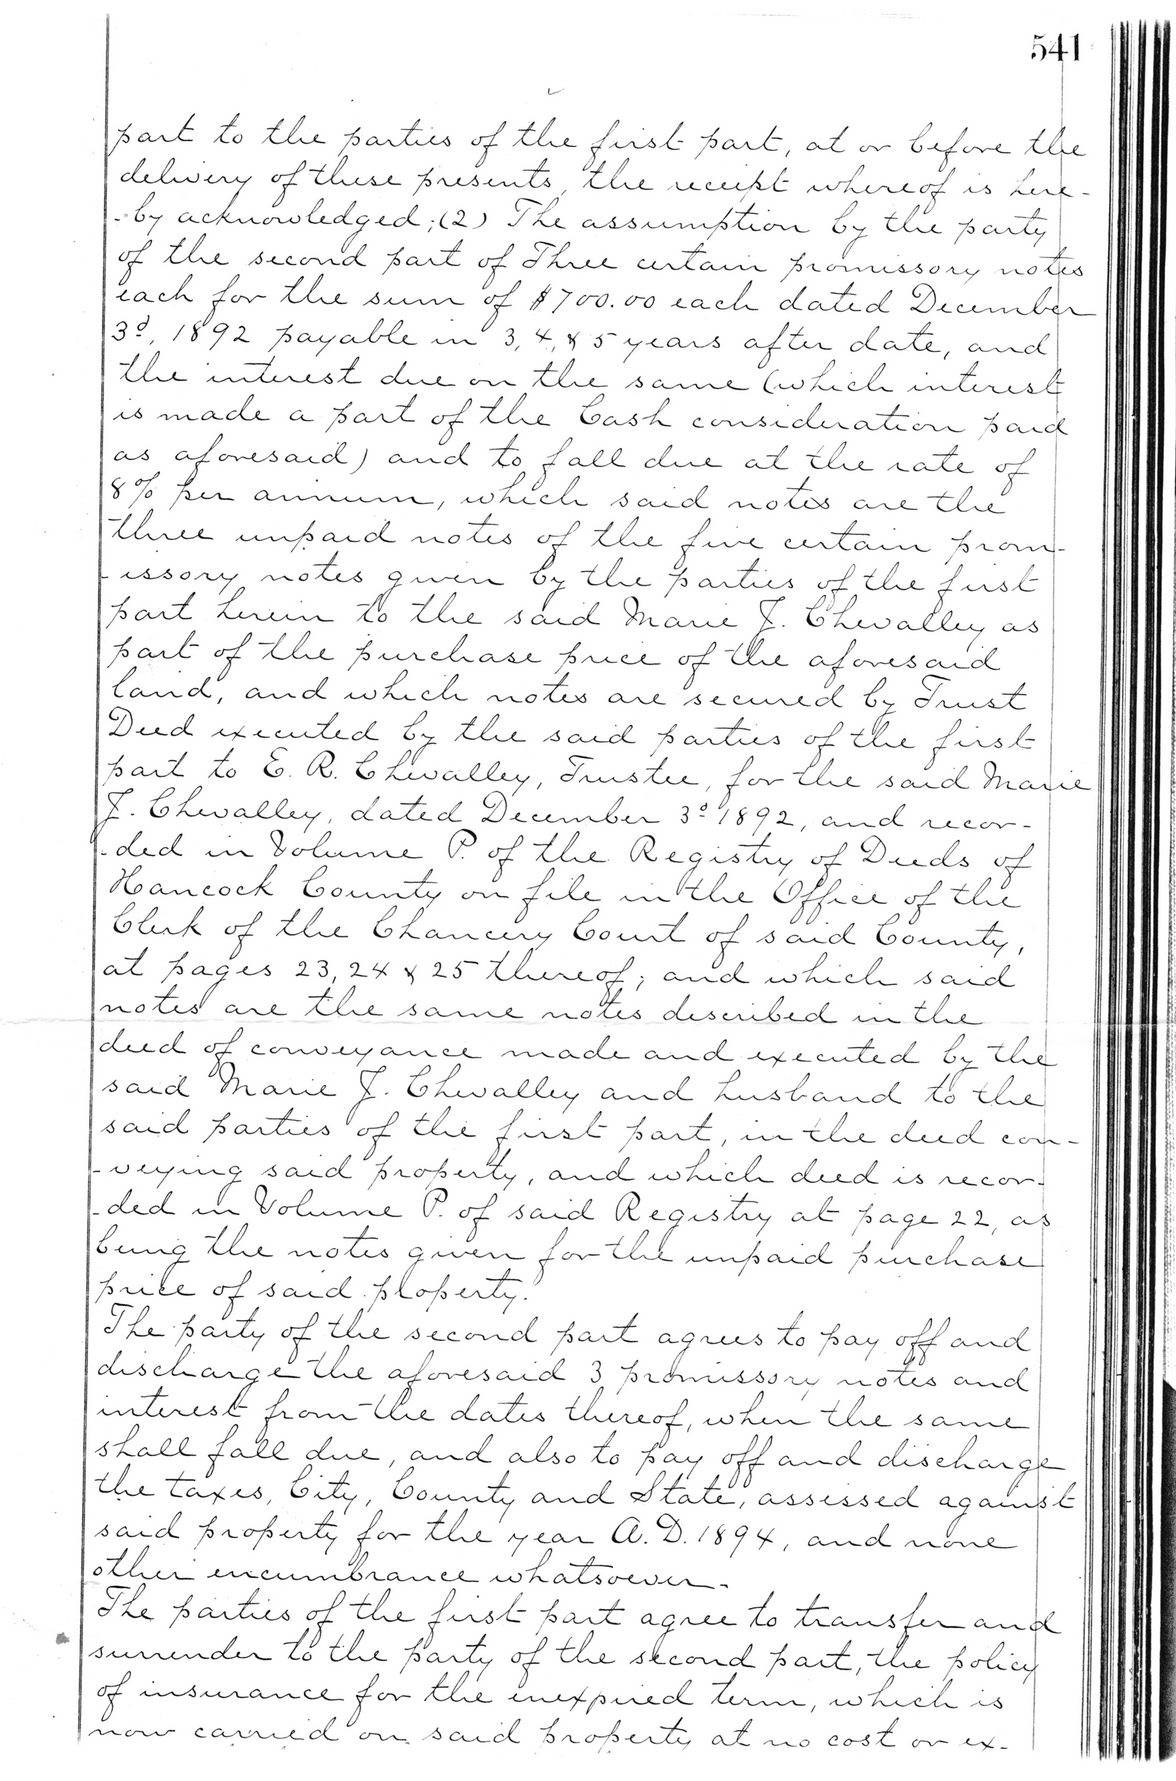 541
part to the parties of the first part, at or before the
delivery of these presents, the receipt whereof is here-
-by acknowledged; (2) The assumption by the party
of the second part of Three certain promissory notes
each for the sum of $700.00 each dated December
3d, 1892 payable in 3, 4, & 5 years after date, and
the interest due on the same (which interest
is made a part of the Cash consideration paid
as aforesaid) and to fall due at the rate of
8% per annum, which said notes are the
three unpaid notes of the five certain prom-
-issory notes given by the parties of the first
part herein to the said Marie J. Chevalley as
part of the purchase price of the aforesaid
land, and which notes are secured by Trust
Deed executed by the said parties of the first
part to E. R. Chevalley, Trustee, for the said Marie
J. Chevalley, dated December 3d 1892, and recor-
-ded in Volume P. of the Registry of Deeds of
Hancock County on file in the Office of the
Clerk of the Chancery Court of said County,
at pages 23, 24 & 25 thereof; and which said
notes are the same notes described in the
deed of conveyance made and executed by the
said Marie J. Chevalley and husband to the
said parties of the first part, in the deed con-
-veying said property, and which deed is recor-
-ded in Volume P. of said Registry at page 22, as
being the notes given for the unpaid purchase
price of said property.
The party of the second part agrees to pay off and
discharge the aforesaid 3 promissory notes and
interest from the dates thereof, when the same
shall fall due, and also to pay off and discharge
the taxes, City, County and State, assessed against
said property for the year A.D. 1894, and none
other encumbrance whatsoever.
The parties of the first part agree to transfer and
surrender to the party of the second part, the policy
of insurance for the unexpired term, which is
now carried on said property at no cost or ex-